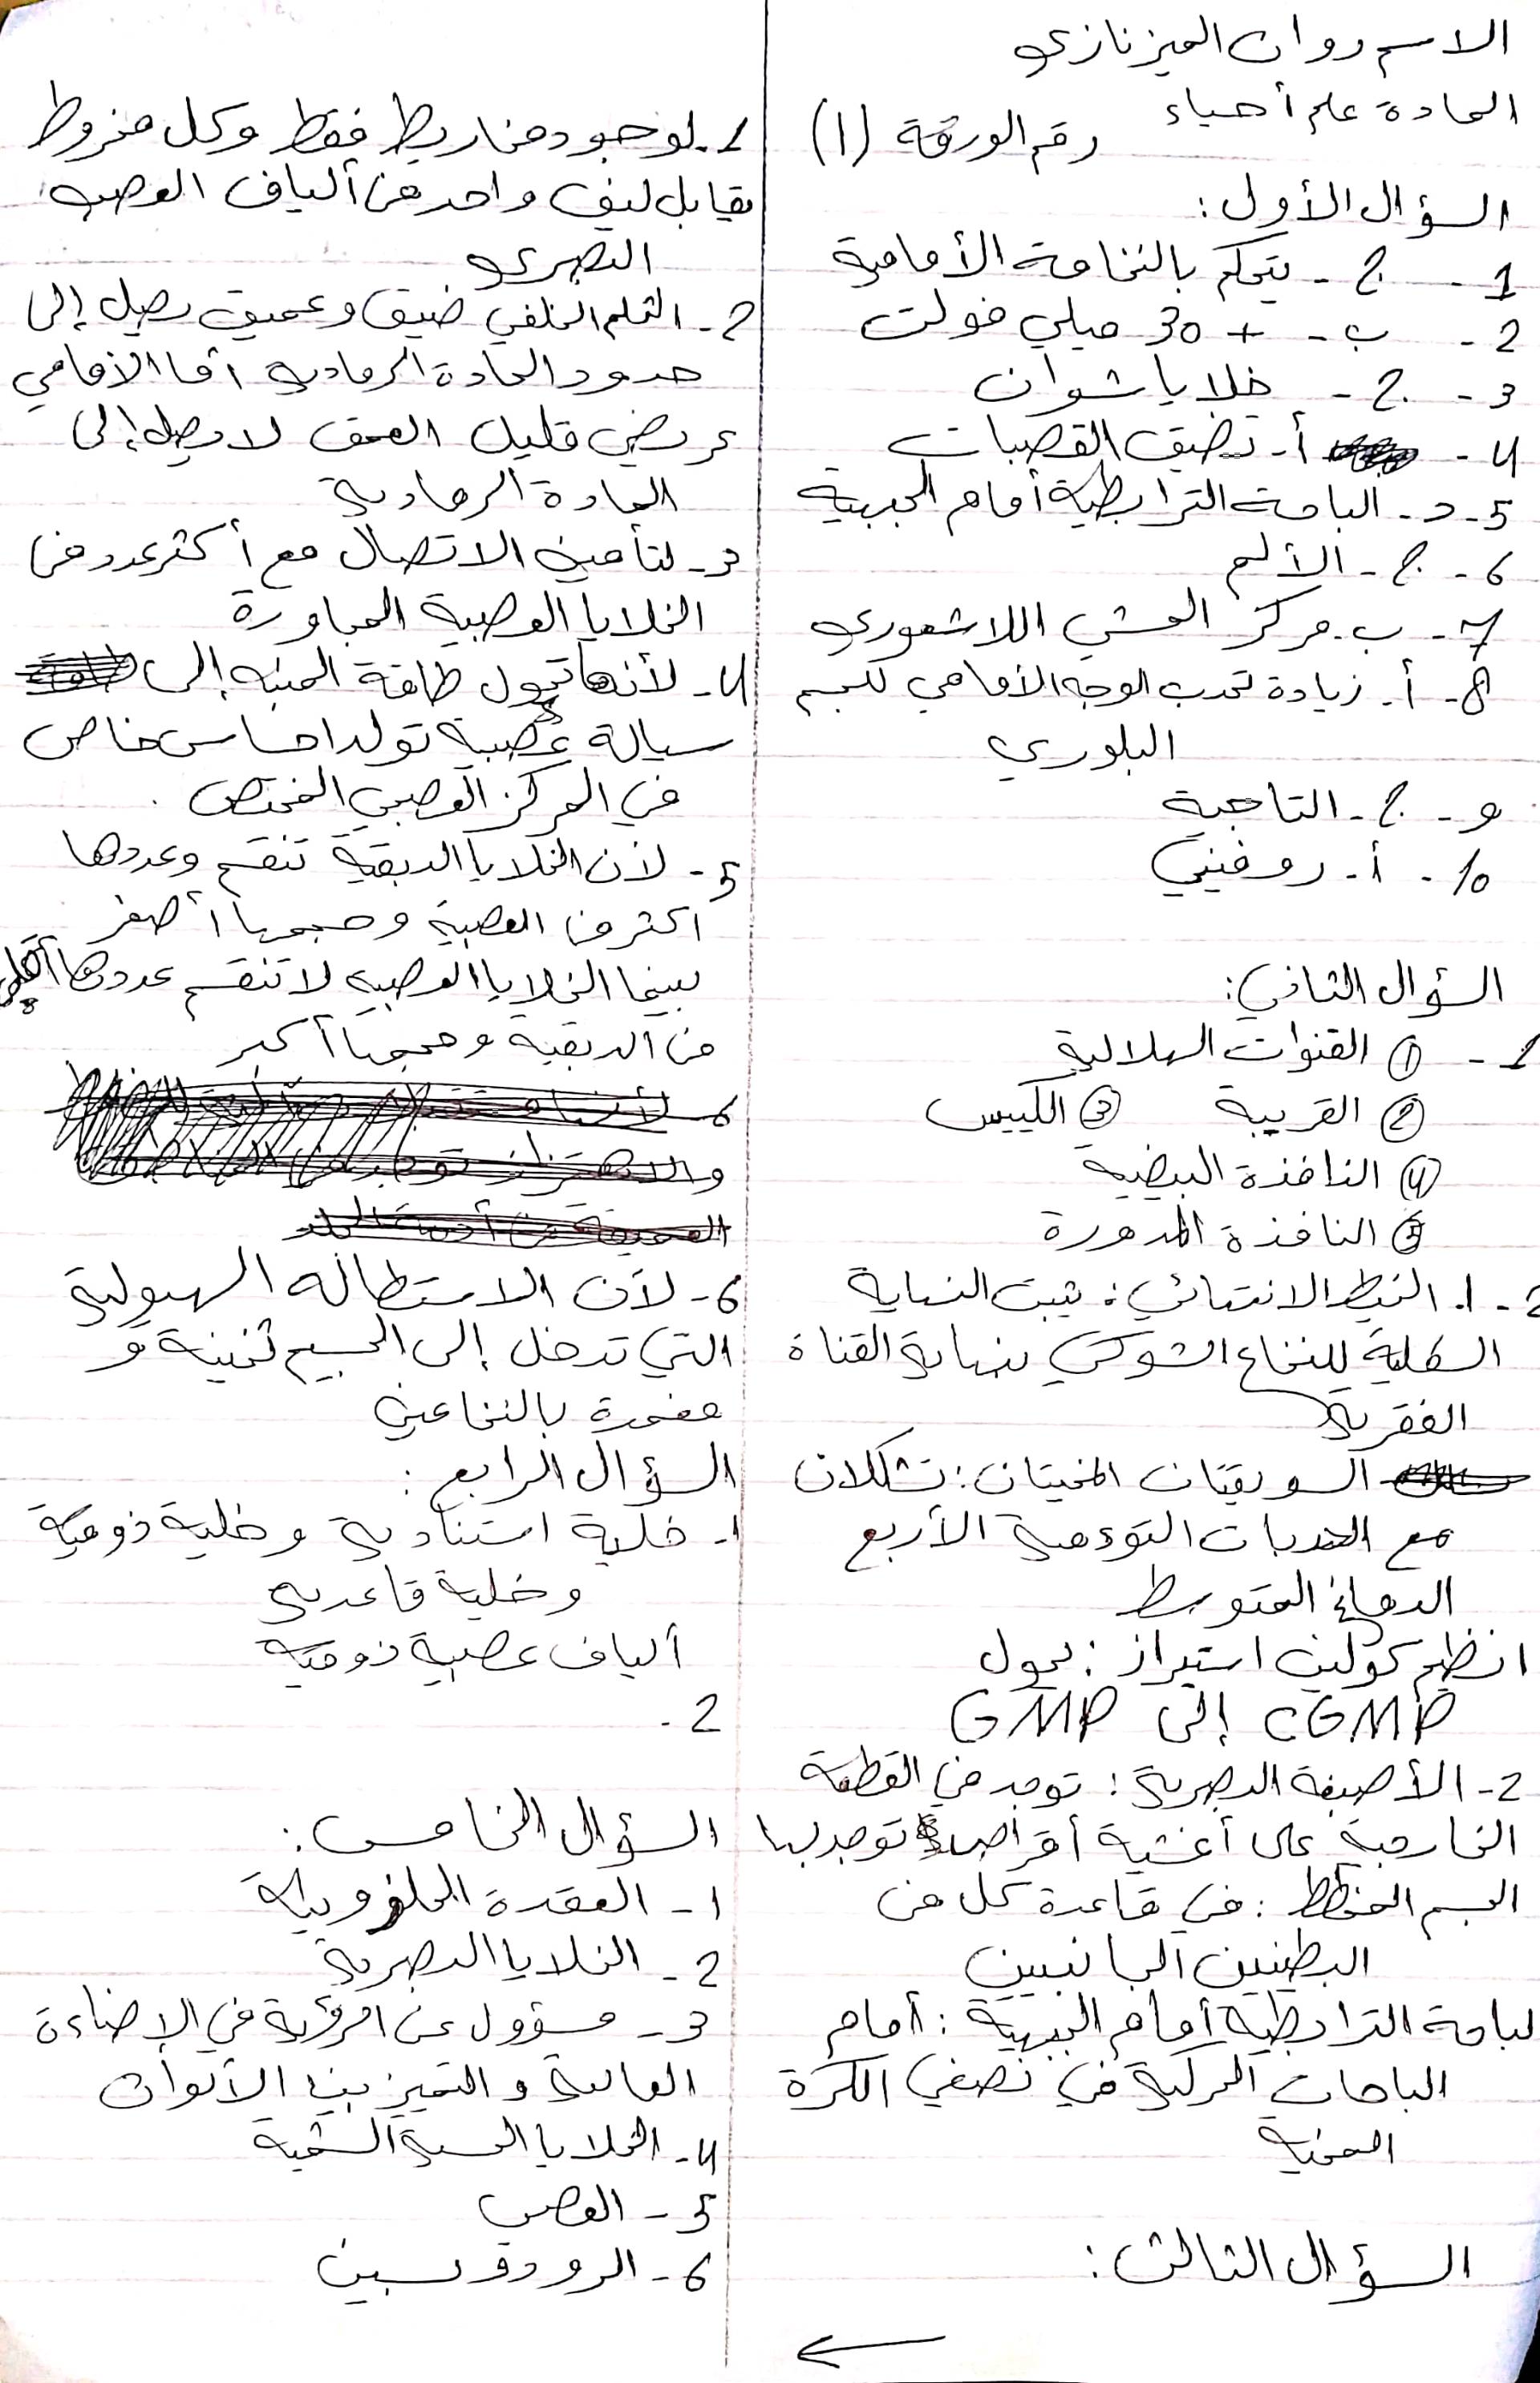 الاسم روان الميزنازي
المادة علم أحياء
رقم الورقة (1)
السؤال الأول:
1 - ج - يتحكم بالنخامة الأمامية
2 - ب - + 30 ميلي فولت
3 - ج - خلايا شوان
4 - أ - تضيق القصبات
5 - د - الباحة الترابطية أمام الجبهية
6 - ج - الألم
7 - ب - مركز المشي اللاشعوري
8 - أ - زيادة تحدب الوجه الأمامي للجسم
البلوري
9 - ج - التاجية
10 - أ - روفيني
السؤال الثاني:
1 - ① القنوات الهلالية
② القريبة ③ الكييس
④ النافذة البيضية
⑤ النافذة المدورة
2 - 1. الخيط الانتهائي: يثبت النهاية
السفلية للنخاع الشوكي بنهاية القناة
الفقرية
السويقتان المخيتان: تشكلان
مع الحدبات التوءمية الأربع
الدماغ المتوسط
انظيم كولين استيراز: يحول
CGMP إلى GMP
2- الأصبغة البصرية: توجد في القطعة
الخارجية على أغشية أقراص توجد بها
الجسم المخطط: في قاعدة كل من
البطينين الجانبيين
لباحة الترابطية أمام الجبهية: أمام
الباحات الحركية في نصفي الكرة
المخية
السؤال الثالث:
1- لوجود مخاريط فقط وكل مخروط
يقابل ليف واحد من ألياف العصب
البصري
2- الثلم الخلفي ضيق وعميق يصل إلى
حدود المادة الرمادية أما الأمامي
عريض قليل العمق لا يصل إلى
المادة الرمادية
3- لتأمين الاتصال مع أكثر عدد من
الخلايا العصبية المجاورة
4- لأنها تحول طاقة المنبه إلى
سيالة عصبية تولد احساس خاص
في المركز العصبي المختص .
5- لأن الخلايا الدبقية تنقسم وعددها
اكثر من العصبية وحجمها أصغر
بينما الخلايا العصبية لا تنقسم عددها أقل
من الدبقية وحجمها أكبر
6- لأن الاستطالة الهيولية
التي تدخل إلى الجسيم ثخينة و
مغمدة بالنخاعين
السؤال الرابع:
1- خلية استنادية وخلية ذوقية
وخلية قاعدية
ألياف عصبية ذوقية
2 -
السؤال الخامس:
1- العقدة الحلزونية
2- الخلايا البصرية
3- مسؤول عن الرؤية في الإضاءة
العالية والتمييز بين الألوان
4- الخلايا الحسية الشمية
5- العصي
6- الرودوبسين